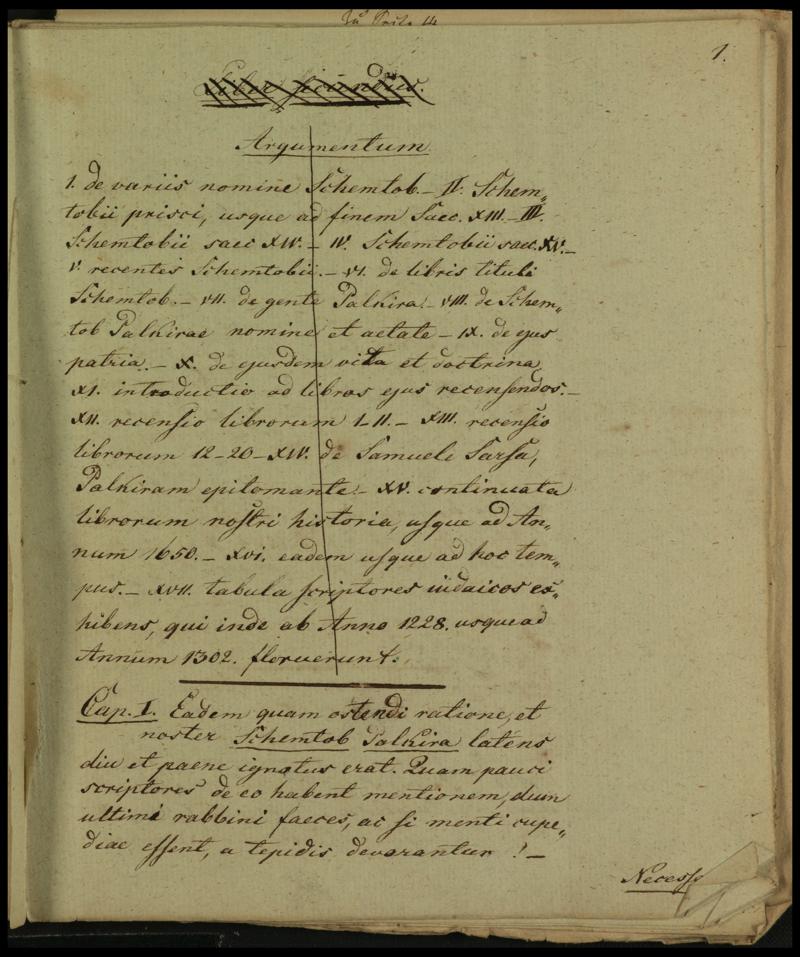 Zu Seite 14
1.
Liber secundus.
Argumentum
1. de variis nomine Schemtob. – II. Schem„
tobii prisci, usque ad finem Saec. XIII. – III.
Schemtobii saec XIV. – IV. Schemtobii saec. XV. –
V. recentes Schemtobii. – VI. de libris tituli
Schemtob. – VII. de gente Palkira. – VIII. de Schem„
tob Palkirae nomine et aetate – IX. de ejus
patria. – X. de ejusdem vita et doctrina,
XI. introductio ad libros ejus recensendos. –
XII. recensio librorum 1–11. – XIII. recensio
librorum 12–20 – XIV. de Samuele Sarsa,
Palkiram epitomante. – XV. continuata
librorum nostri historia, usque ad An„
num 1650. – XVI. eadem usque ad hoc tem„
pus. – XVII. tabula scriptores iudaicos ex„
hibens, qui inde ab Anno 1228. usque ad
Annum 1302. floruerunt.
Cap. I. Eadem quam ostendi ratione, et
noster Schemtob Palkira latens
diu et paene ignotus erat. Quam pauci
scriptores de eo habent mentionem, dum
ultimi rabbini faeces, ac si menti cupe„
diae essent, a tepidis devorantur! –
Necess